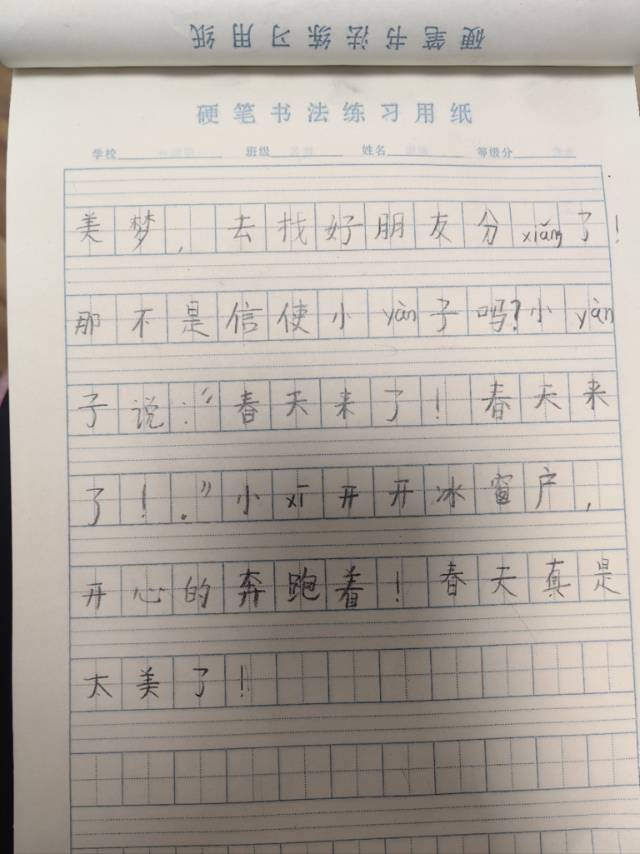 硬笔书法练习用纸
硬笔书法练习用纸
学校 班级 姓名 等级分
美梦，去找好朋友分xiǎng了！
那不是信使小yàn子吗？小yàn
子说：“春天来了！春天来
了！.”小xī开开冰窗户，
开心的奔跑着！春天真是
太美了！